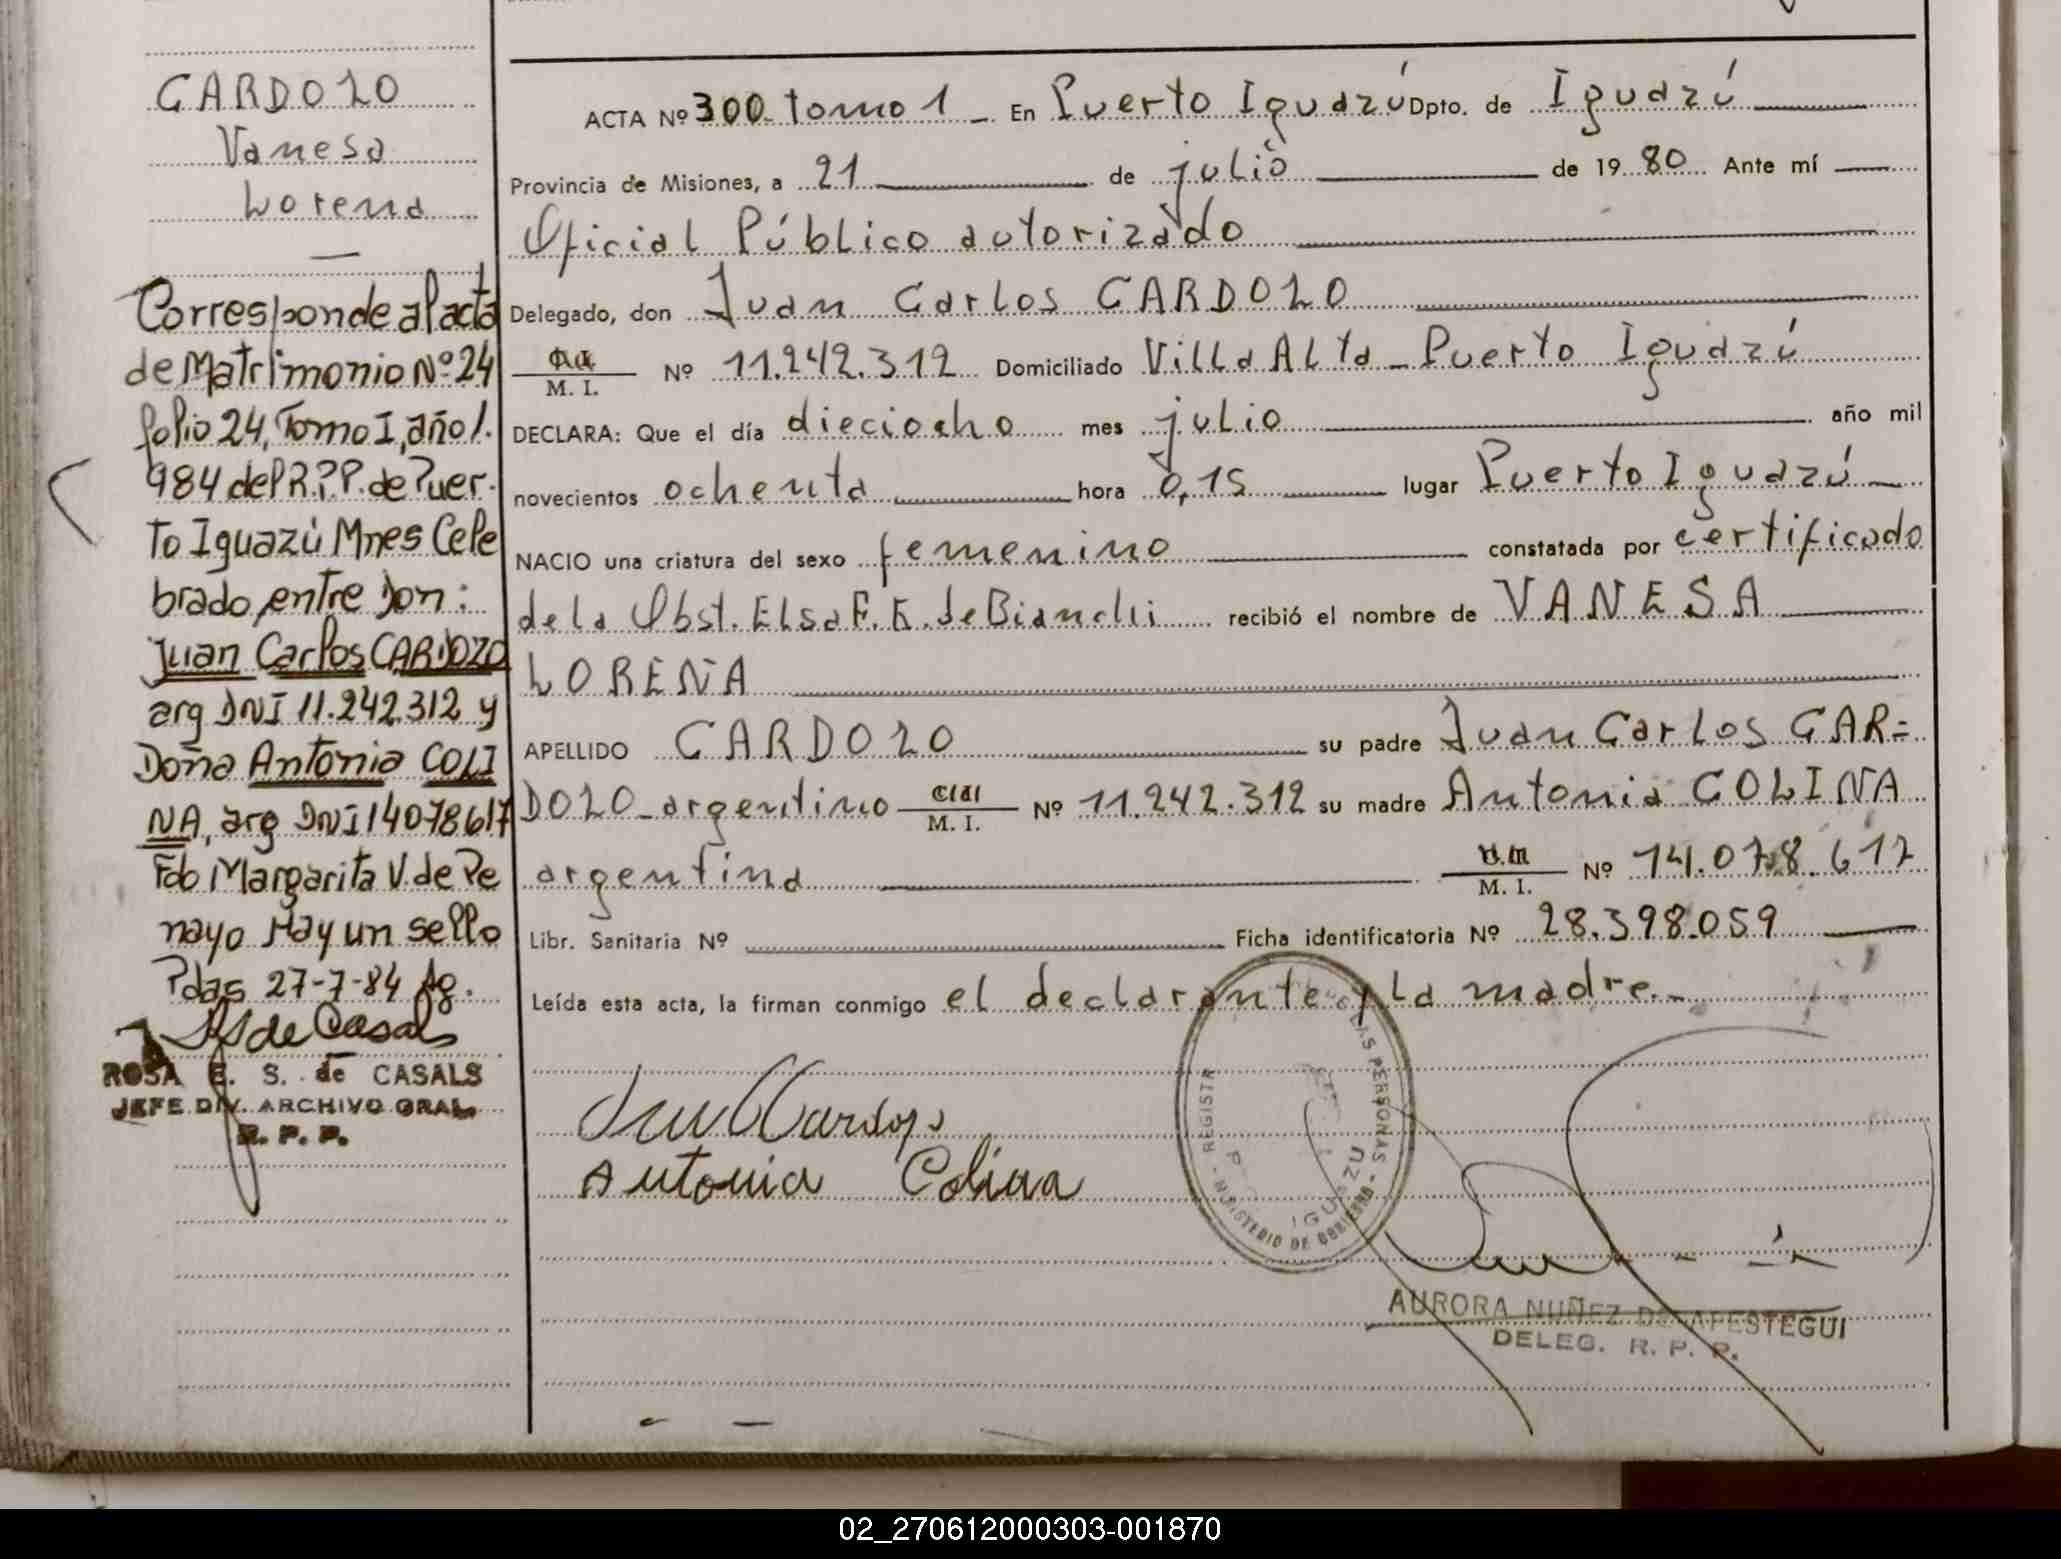 CARDOZO
Vanesa
Lorena
Corresponde al acta
de Matrimonio Nº 24
folio 24, Tomo I, año 1.
984 del R.P.P. de Puer.
to Iguazú Mnes Cele
brado, entre Don:
Juan Carlos CARDOZO
arg DNI 11.242.312 y
Doña Antonia COLI
NA, arg DNI 14078617
Fdo Margarita V. de Pe
nayo Hay un sello
Pdas 27-7-84 Ag.
de Casals
ROSA E. S. de CASALS
JEFE DIV. ARCHIVO GRAL.
R. P. P.
ACTA Nº 300 - tomo 1 - En Puerto Iguazú Dpto. de Iguazú
Provincia de Misiones, a 21 de julio de 19 80 Ante mí
Oficial Público autorizado
Delegado, don Juan Carlos CARDOZO
M. I. Nº 11.242.312 Domiciliado Villa Alta - Puerto Iguazú
DECLARA: Que el día dieciocho mes julio año mil
novecientos ochenta hora 0,15 lugar Puerto Iguazú
NACIO una criatura del sexo femenino constatada por certificado
de la Obst. Elsa F. K. de Bianchi recibió el nombre de VANESA
LORENA
APELLIDO CARDOZO su padre Juan Carlos CAR=
DOZO - argentino M. I. Nº 11.242.312 su madre Antonia COLINA
argentina M. I. Nº 14.078.617
Libr. Sanitaria Nº Ficha identificatoria Nº 28.398.059
Leída esta acta, la firman conmigo el declarante y la madre.-
Juan C Cardozo
Antonia Colina
LAS PERSONAS
IGUAZU
MINISTERIO DE GOBIERNO
AURORA NUÑEZ DE APESTEGUI
DELEG. R. P. P.
02_270612000303-001870